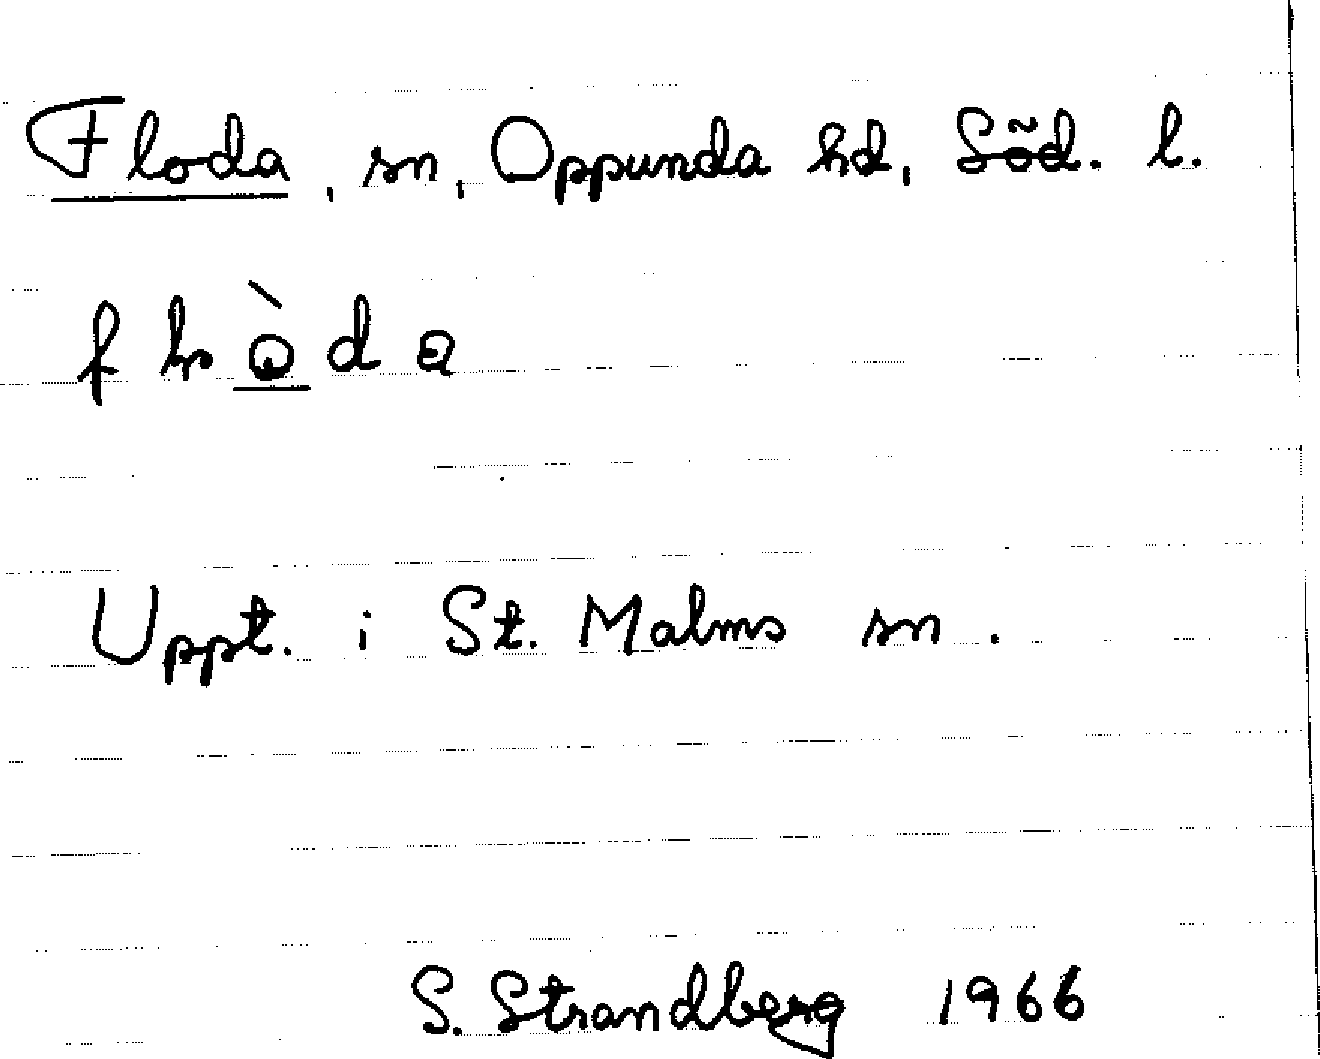 Floda, sn, Oppunda hd, Söd. l.
Uppt. i St. Malms sn.
S. Strandberg 1966